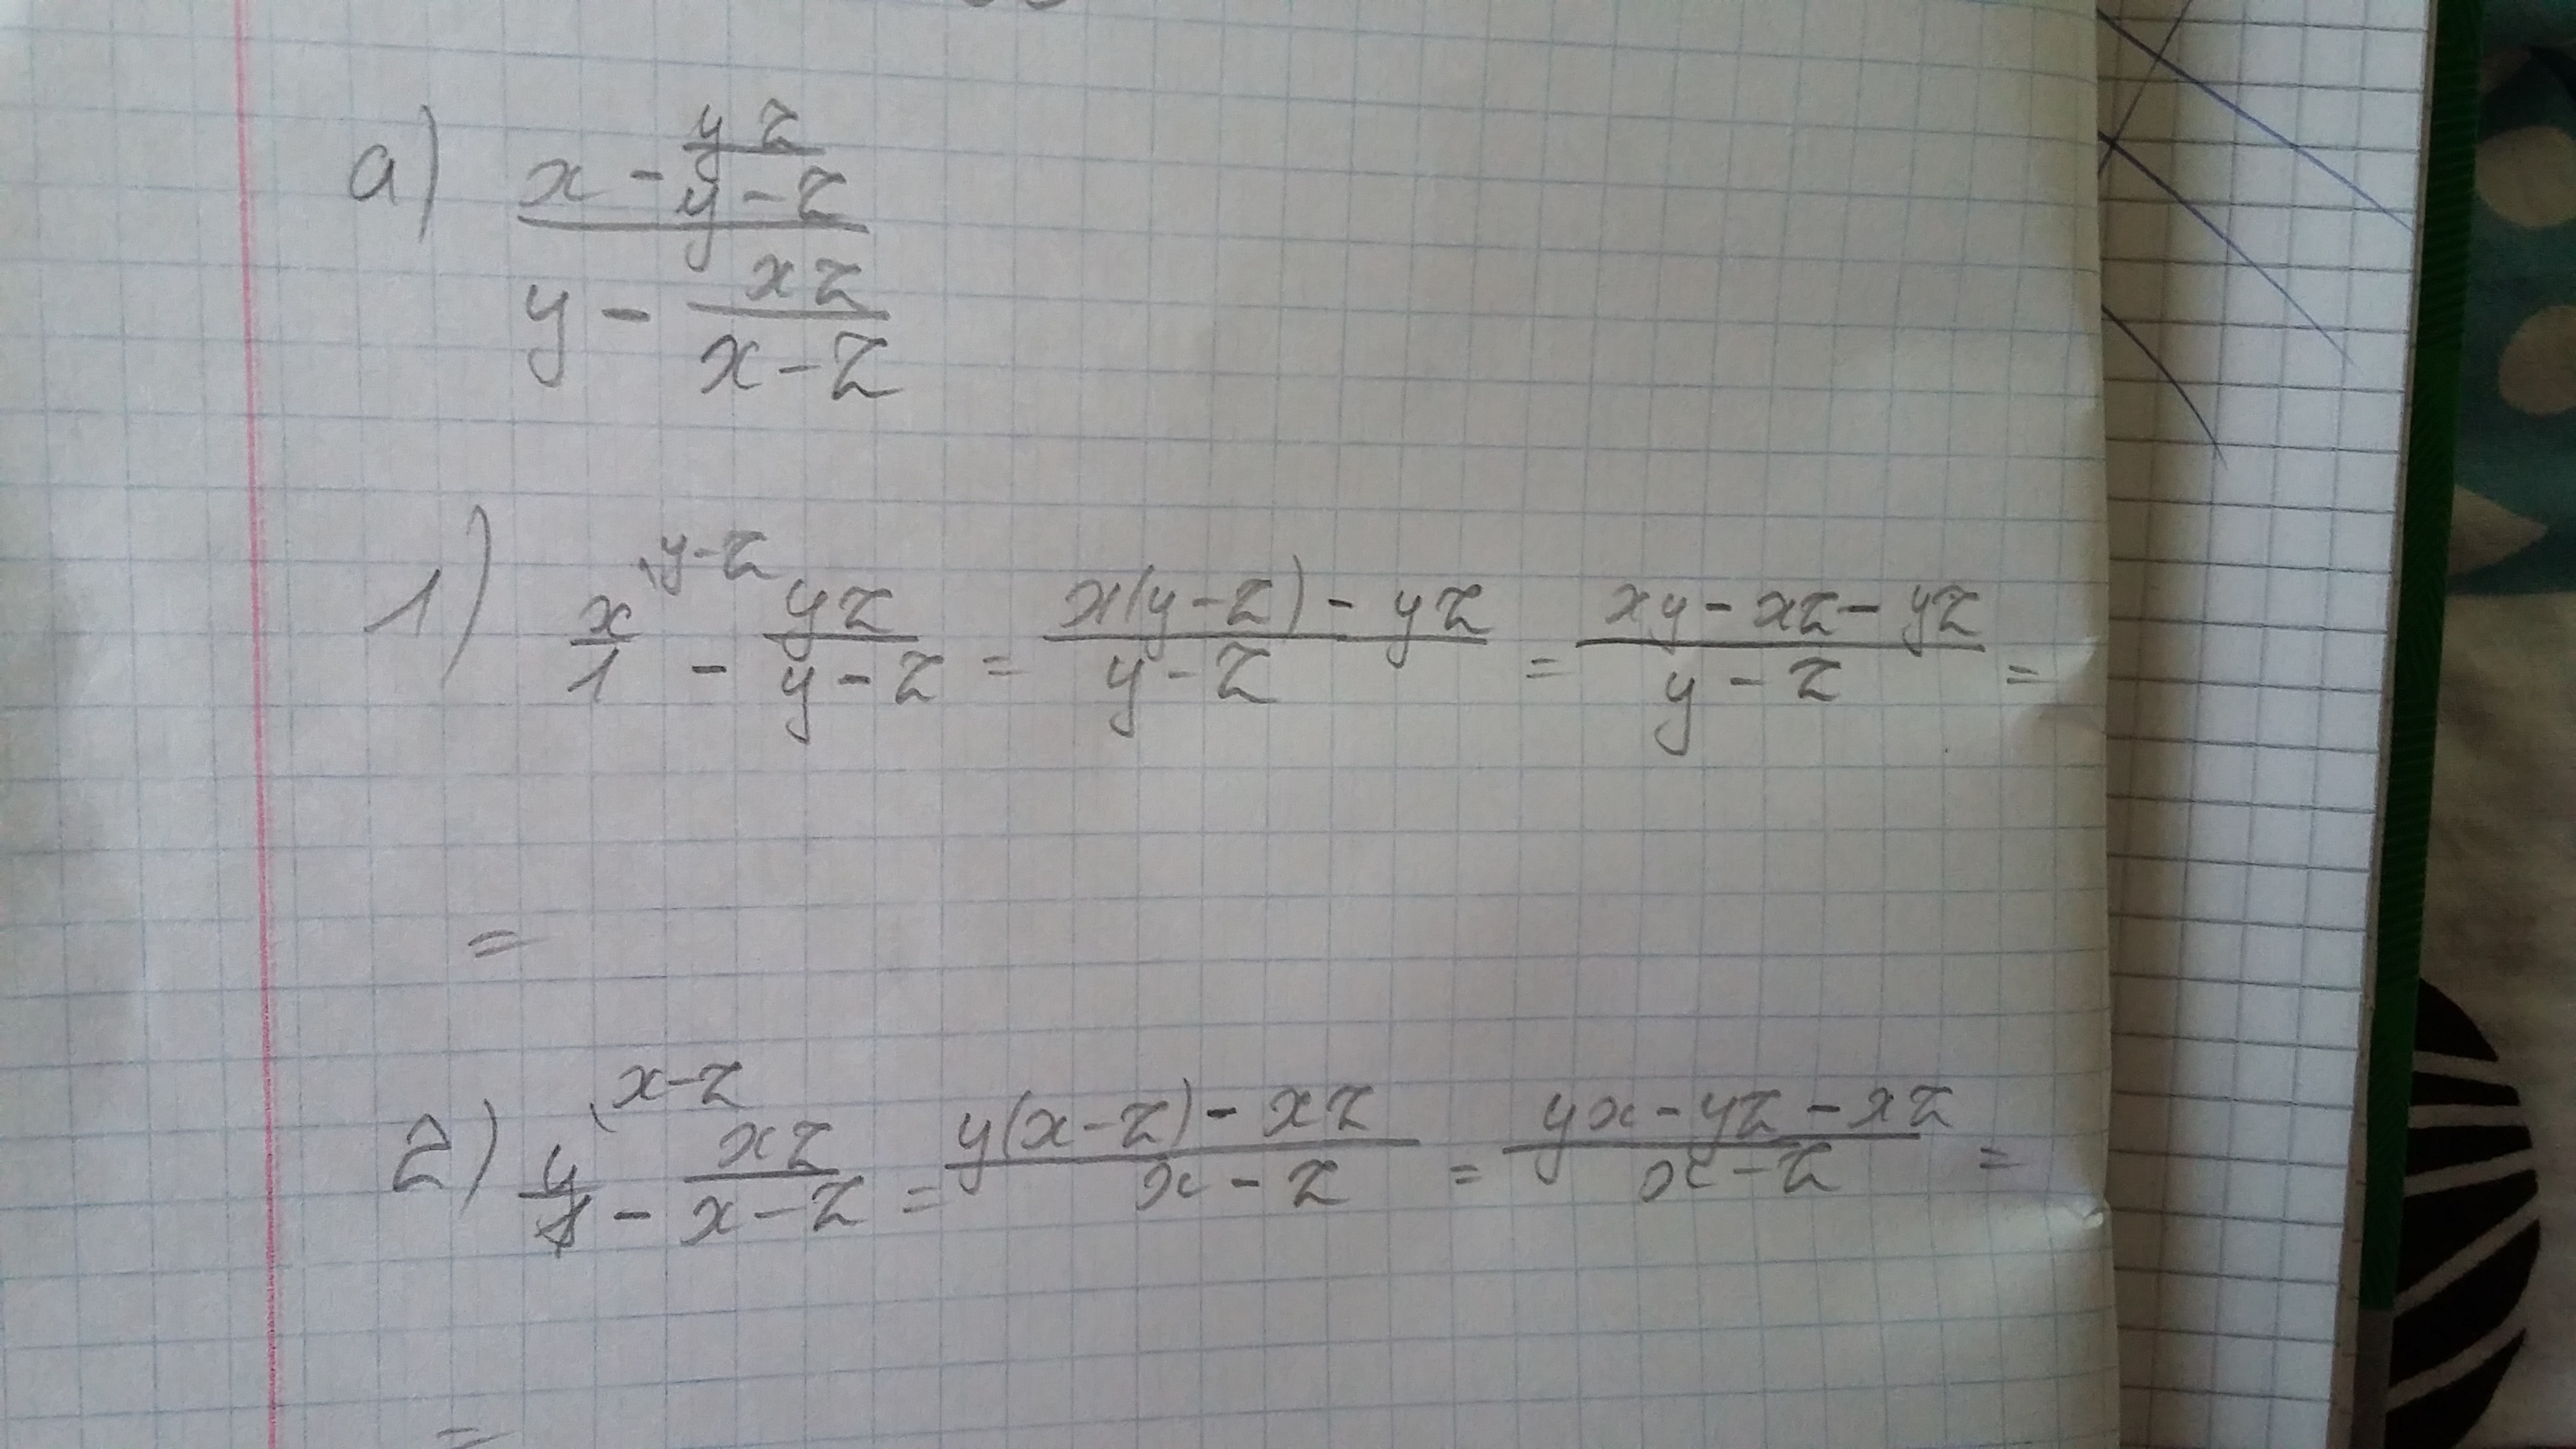 a) x - yz
y - z
y - xz
x - z
1) x/1 ·y-z - yz/y-z = x(y-z) - yz/y-z = xy - xz - yz/y - z =
=
2) y/1 ·x-z - xz/x-z = y(x-z) - xz/x - z = yx - yz - xz/x - z =
=